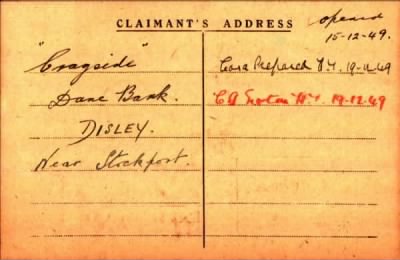 CLAIMANT'S ADDRESS
opened
15-12-49.
"Cragside"
Dane Bank.
DISLEY.
Near Stockport.
Card Prepared 19-12-49
19-12-49